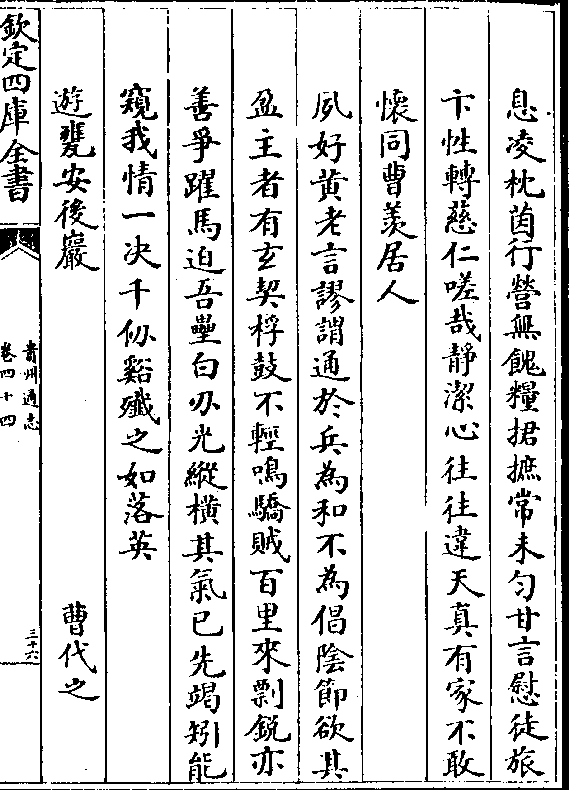 息凌枕茵行營無餽糧捃摭常未勻甘言慰徒旅
卞性轉慈仁嗟哉靜潔心往往違天真有家不敢
懷同曹羡居人
夙好黄老言謬謂通於兵為和不為倡陰節欲其
盈主者有玄契桴鼓不輕鳴驕賊百里來剽鋭亦
善爭躍馬迫吾壘白刃光縱横其氣已先竭矧能
窺我情一决千仭谿殲之如落英
遊甕安後巖　曹代之
欽定四庫全書
貴州通志
卷四十四
三十六